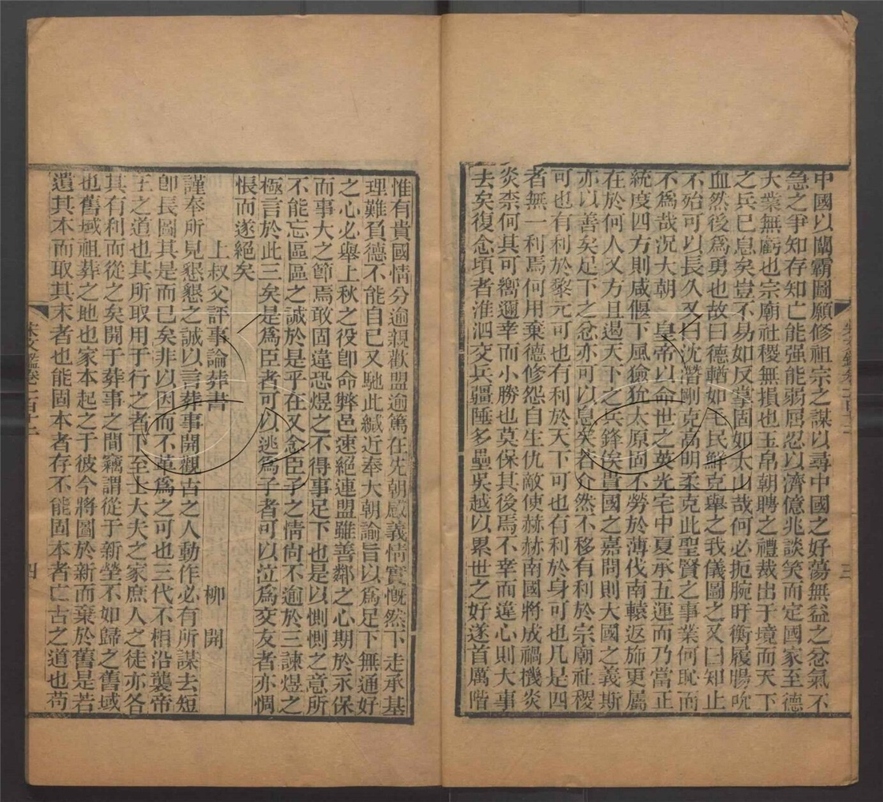 中國以闡霸圖願修祖宗之謀以尋中國之好蕩無益之忿氣不
急之爭知存知亡能强能弱屈忍以濟億兆談笑而定國家至德
大業無虧也宗廟社稷無損也玉帛朝聘之禮裁出于境而天下
之兵巳息矣豈不易如反掌固如太山哉何必扼腕盱衡履腸吮
血然後爲勇也故曰德輶如毛民鮮克舉之我儀圖之又曰知止
不殆可以長久又曰沈潛剛克高明柔克此聖賢之事業何恥而
不爲哉况大朝皇帝以命世之英光宅中夏承五運而乃當正
統度四方則咸偃下風獫狁太原固不勞於薄伐南轅返斾更屬
在於何人又方且遏天下之兵鋒俟貴國之嘉問則大國之義斯
亦以善矣足下之忿亦可以息矣若介然不移有利於宗廟社稷
可也有利於黎元可也有利於天下可也有利於身可也凡是四
者無一利焉何用棄德修怨自生仇敵使赫赫南國將成禍機炎
炎柰何其可嚮邇幸而小勝也莫保其後焉不幸而違心則大事
去矣復念頃者淮泗交兵疆陲多壘吳越以累世之好遂首厲階
三
惟有貴國情分逾親歡盟逾篤在先朝感義情實慨然下走承基
理難負德不能自已又馳此緘近奉大朝諭旨以爲足下無通好
之心必舉上秋之役卽命弊邑速絕連盟雖善鄰之心期於永保
而事大之節焉敢固違恐煜之不得事足下也是以惻惻之意所
不能忘區區之誠於是乎在又念臣子之情尙不逾於三諫煜之
極言於此三矣是爲臣者可以逃爲子者可以泣爲交友者亦惆
悵而遂絕矣
上叔父評事論葬書
柳開
謹奉所見懇懇之誠以言葬事開觀古之人動作必有所謀去短
卽長圖其是而巳矣非以因而不革爲之可也三代不相沿襲帝
王之道也其所取用于行之者下至士大夫之家庶人之徒亦各
其有利而從之矣開于葬事之間竊謂從于新塋不如歸之舊域
也舊域祖葬之地也家本起之于彼今將圖於新而棄於舊是若
遺其本而取其末者也能固本者存不能固本者亡古之道也苟
四